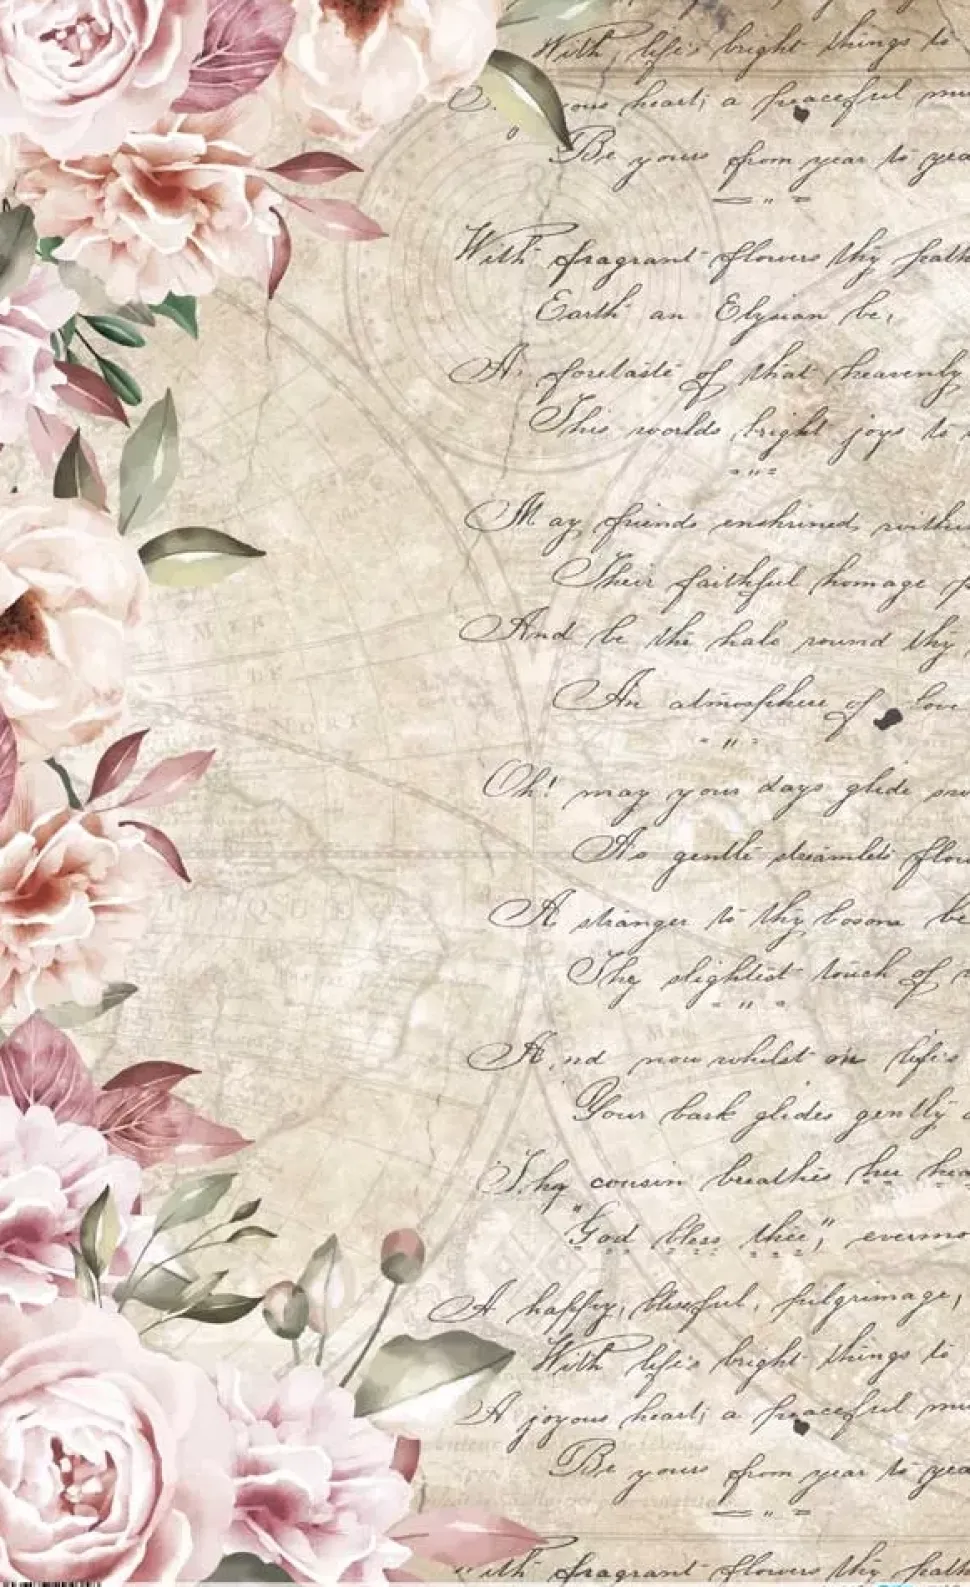 With life's bright things to
ous heart; a peaceful
Be yours from year to
With fragrant flowers thy
Earth an Elysian be,
A foretaste of that heavenly
This worlds bright joys to
May friends enshrined
Their faithful homage
And be the halo round thy
An atmosphere of Love
Oh! may your days glide
As gentle streamlets
A stranger to thy bosom be
The slightest touch of
And now whilst on life's
Your bark glides gently
Thy cousin breathes her
"God bless thee",
A happy, blissful, pilgrimage,
With life's bright things to
A joyous heart; a peaceful
Be yours from year to
fragrant flowers thy